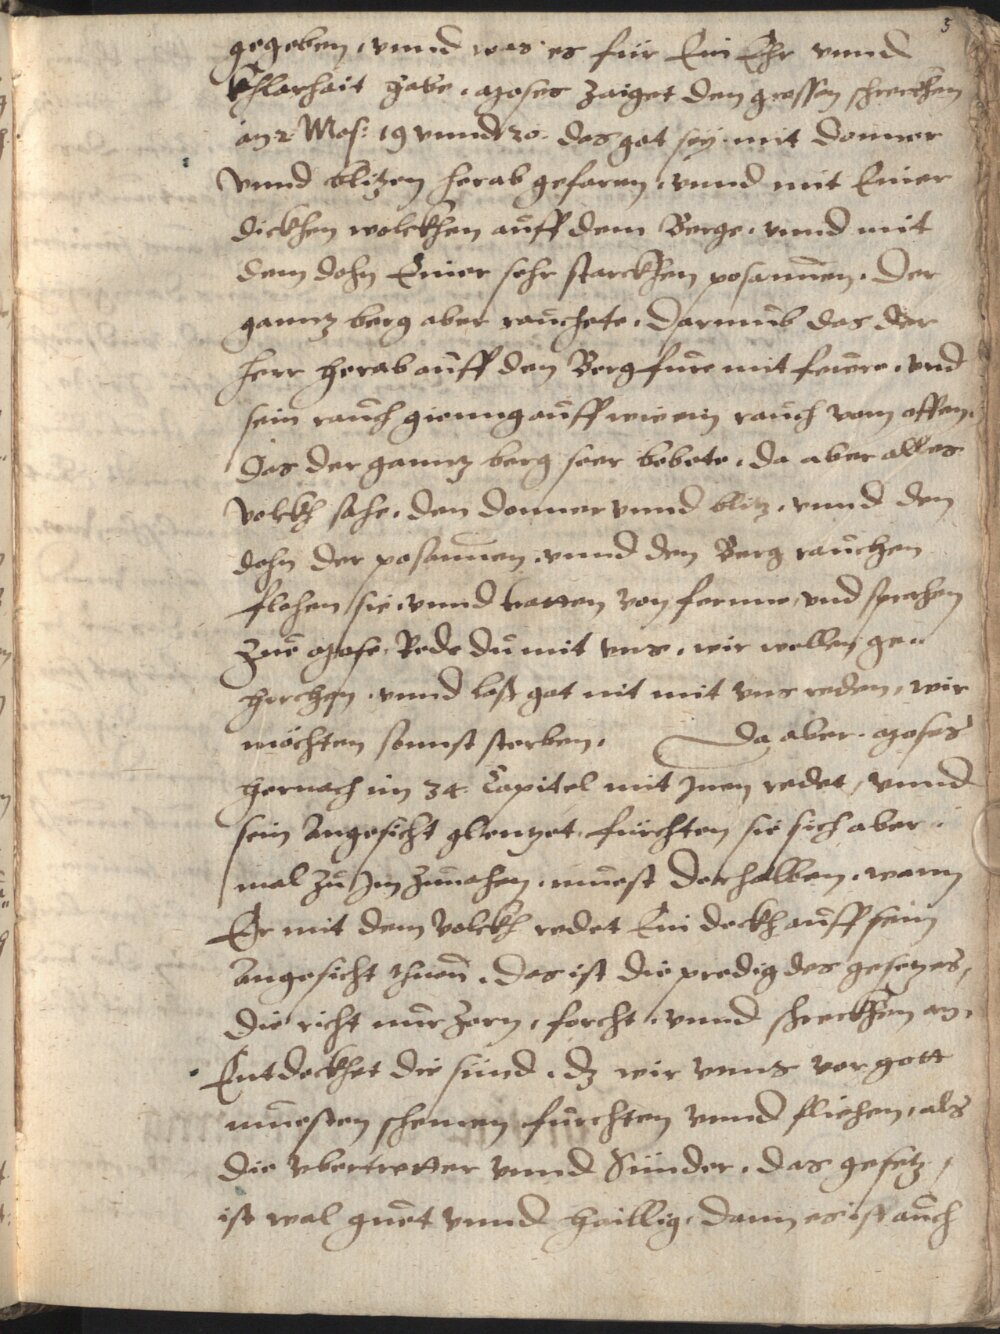 5
gegeben, vnnd was es für Ein Ehr vnnd
Khlarhait habe. Moses zaiget den grossen schreckhen
an 2. Mos: 19 vnnd 20. das got sey mit donner
vnnd blitzen herab gefaren, vnnd mit Einer
dickhen wolckhen auff dem Berge, vnnd mit
dem dohn Einer sehr starckhen posaunen. Der
gantz berg aber rauchete. Darumb das der
herr herab auff den Berg fure mit feuere, vnd
sein rauch gienng auff wie ein rauch vom offen.
Das der gantz berg seer bebete. da aber alles
Volckh sahe, den donner vnnd blitz, vnnd den
dohn der posaunen, vnnd den Berg rauchen
flohen sie, vnnd tratten von fernne, vnd sprachen
zue Mose, Rede du mit vns, wir wellen ge-
horchen, vnnd laß got nit mit vns reden, wir
möchten sonnst sterben. Da aber Moses
hernach im 34 Capitel mit Inen redet, vnnd
sein Angesicht glentzet, fürchten sie sich aber-
mal zu Im zunahen, muest derhalben, wann
Er mit dem Volckh redet Ein deckh auff sein
Angesicht thuen. Das ist die predig des gesetzes,
die richt nur Zorn, forcht, vnnd schreckhen an,
Entdeckhet die sünd, dz wir vnns vor gott
muesten schemen fürchten vnnd fliehen, als
die vbertretter vnnd Sünder. Das gesetz,
ist wol guet vnnd haillig, dann es ist auch